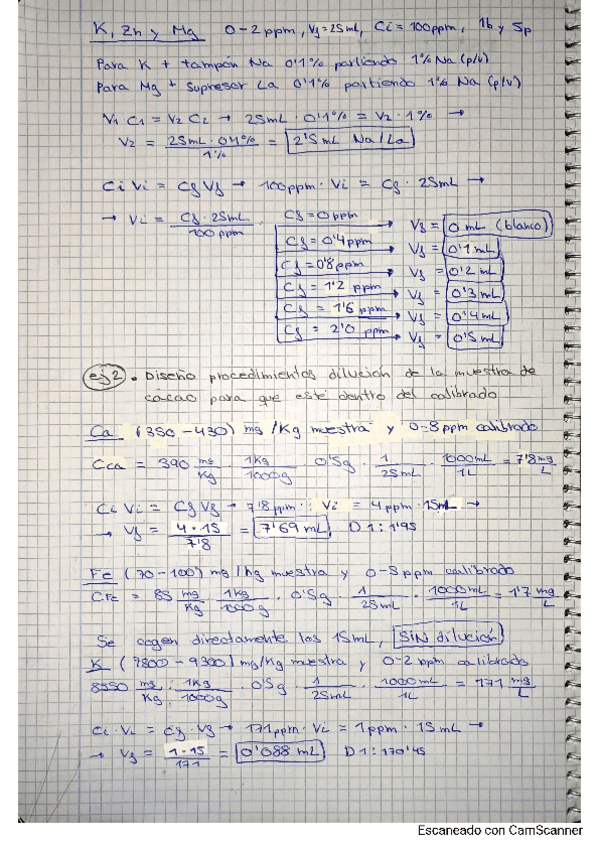 K, Zn y Mg 0-2 ppm, Vf=25mL, Ci = 100ppm, 1b y 5p
Para K + tampón Na 0'1% partiendo 1% Na (p/v)
Para Mg + Supresor La 0'1% partiendo 1% Na (p/v)
V1 C1 = V2 C2 → 25mL · 0'1% = V2 · 1% →
V2 = 25mL · 0'1% / 1% = 2'5 mL Na/La
Ci Vi = Cf Vf → 100ppm · Vi = Cf · 25mL →
→ Vi = Cf · 25mL / 100 ppm
Cf = 0ppm → Vf = 0 mL (blanco)
Cf = 0'4ppm → Vf = 0'1 mL
Cf = 0'8ppm → Vf = 0'2 mL
Cf = 1'2 ppm → Vf = 0'3 mL
Cf = 1'6 ppm → Vf = 0'4 mL
Cf = 2'0 ppm → Vf = 0'5 mL
ej2 . Diseño procedimientos dilución de la muestra de
cacao para que esté dentro del calibrado
Ca (350-430) mg/Kg muestra y 0-8 ppm calibrado
CCa = 390 mg/Kg · 1Kg/1000g · 0'5g · 1/25mL · 1000mL/1L = 7'8 mg/L
Ci Vi = Cf Vf → 7'8 ppm · Vi = 4 ppm · 15mL →
→ Vf = 4·15/7'8 = 7'69 mL, D 1:1'95
Fe (70-100) mg/kg muestra y 0-5 ppm calibrado
CFe = 85 mg/Kg · 1Kg/1000g · 0'5g · 1/25mL · 1000mL/1L = 1'7 mg/L
Se cogen directamente los 15mL, SIN dilución
K (7800-9300) mg/Kg muestra y 0-2 ppm calibrado
8550 mg/Kg · 1Kg/1000g · 0'5g · 1/25mL · 1000mL/1L = 171 mg/L
Ci · Vi = Cf · Vf → 171ppm · Vi = 1ppm · 15mL →
→ Vf = 1·15/171 = 0'088 mL D 1:170'45
Escaneado con CamScanner